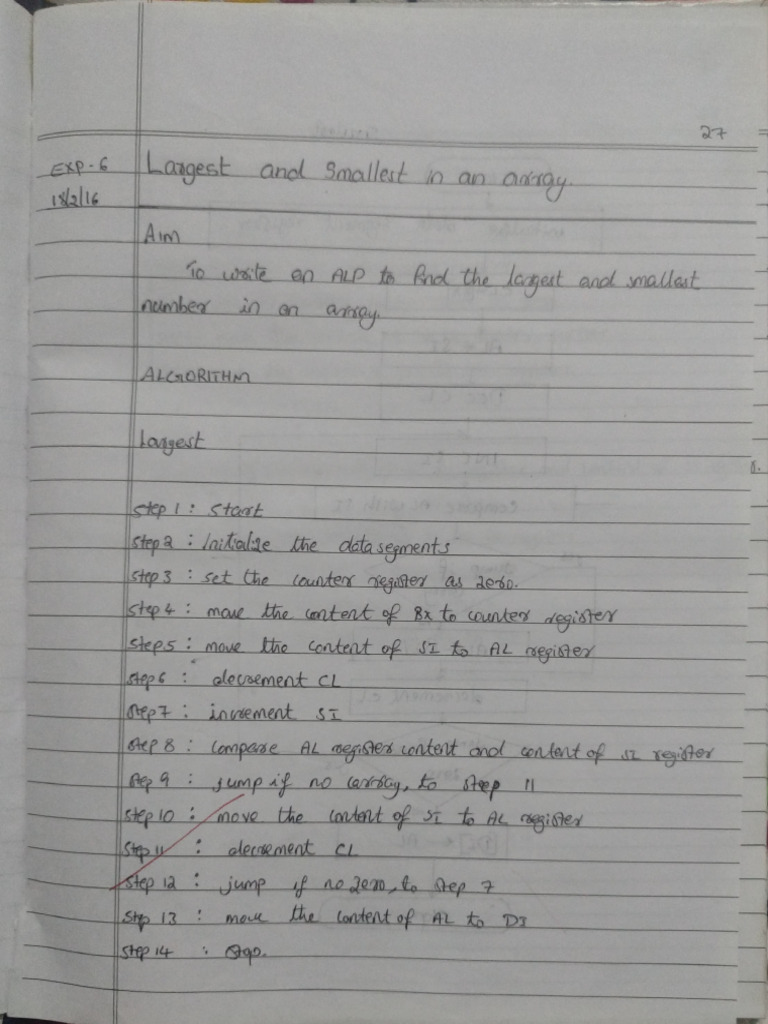 27
EXP-6 Largest and Smallest in an array.
18/2/16
AIM
To write an ALP to find the largest and smallest
number in an array.
ALGORITHM
Largest
Step 1 : Start
Step 2 : Initialize the data segments
Step 3 : set the counter register as zero.
Step 4 : move the content of BX to counter register
Step 5 : move the content of SI to AL register
Step 6 : decrement CL
Step 7 : increment SI
Step 8 : compare AL register content and content of SI register
Step 9 : jump if no carray, to step 11
Step 10 : move the content of SI to AL register
Step 11 : decrement CL
Step 12 : jump if no zero, to step 7
Step 13 : move the content of AL to
Step 14 :